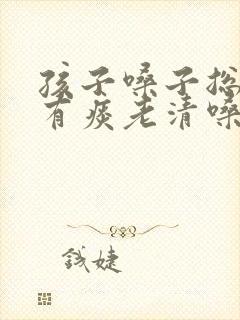 孩子嗓子总
有痰老清嗓
钱婕